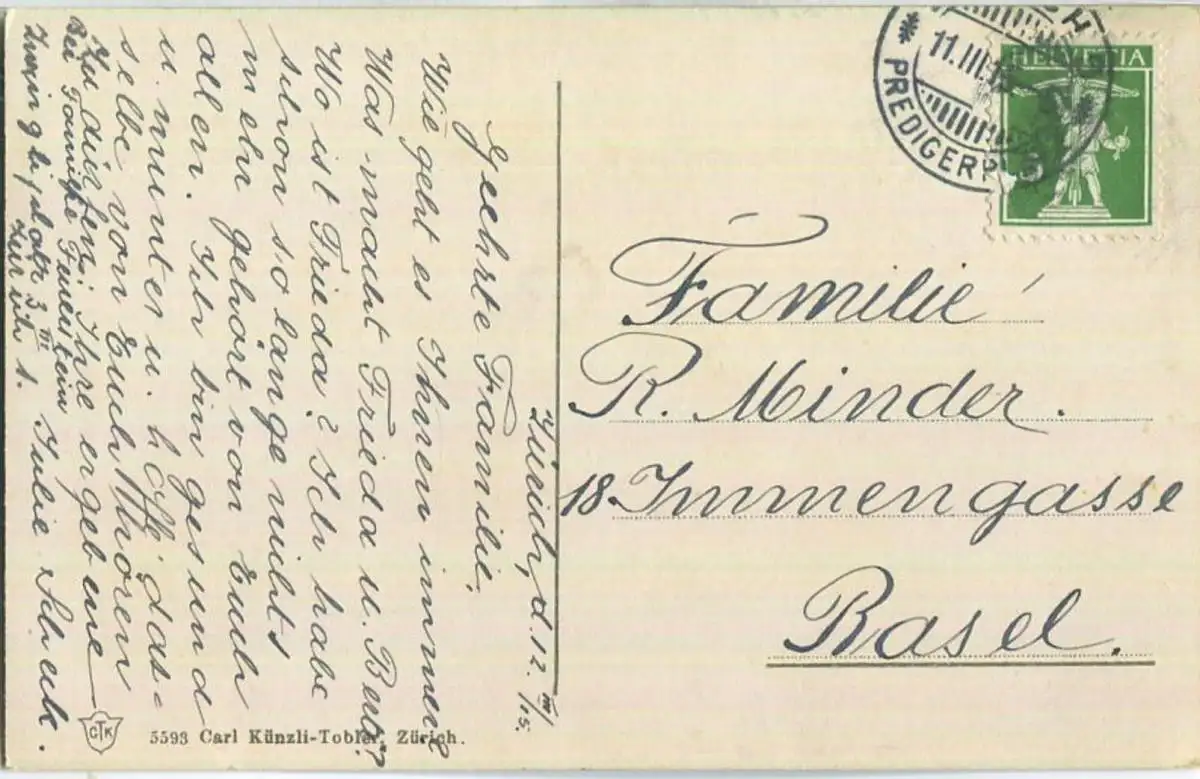 Zürich, d. 12. III/15.
Geehrte Familie,
Wie geht es Ihnen immer?
Was macht Frieda u. Berta?
Wo ist Frieda? Ich habe
schon so lange nichts
mehr gehört von Euch
allen. Ich bin gesund
u. munter u. hoffe das-
selbe von Euch hören
zu dürfen. Ihre ergebene
Julie Schenk.
Bei Familie
Zwingliplatz 3 III
Zürich 1.
Familie
R. Minder.
18 Immengasse
Basel.
HELVETIA
11.III.15
PREDIGERP
5593 Carl Künzli-Tobler, Zürich.
CTK